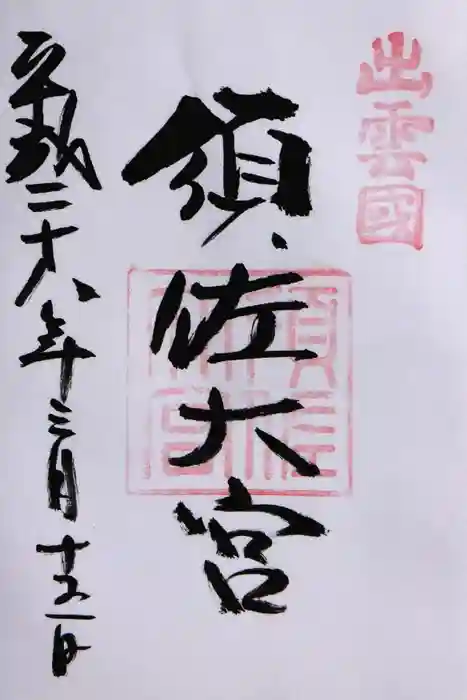 出雲國
須佐大宮
平成二十八年三月十五日